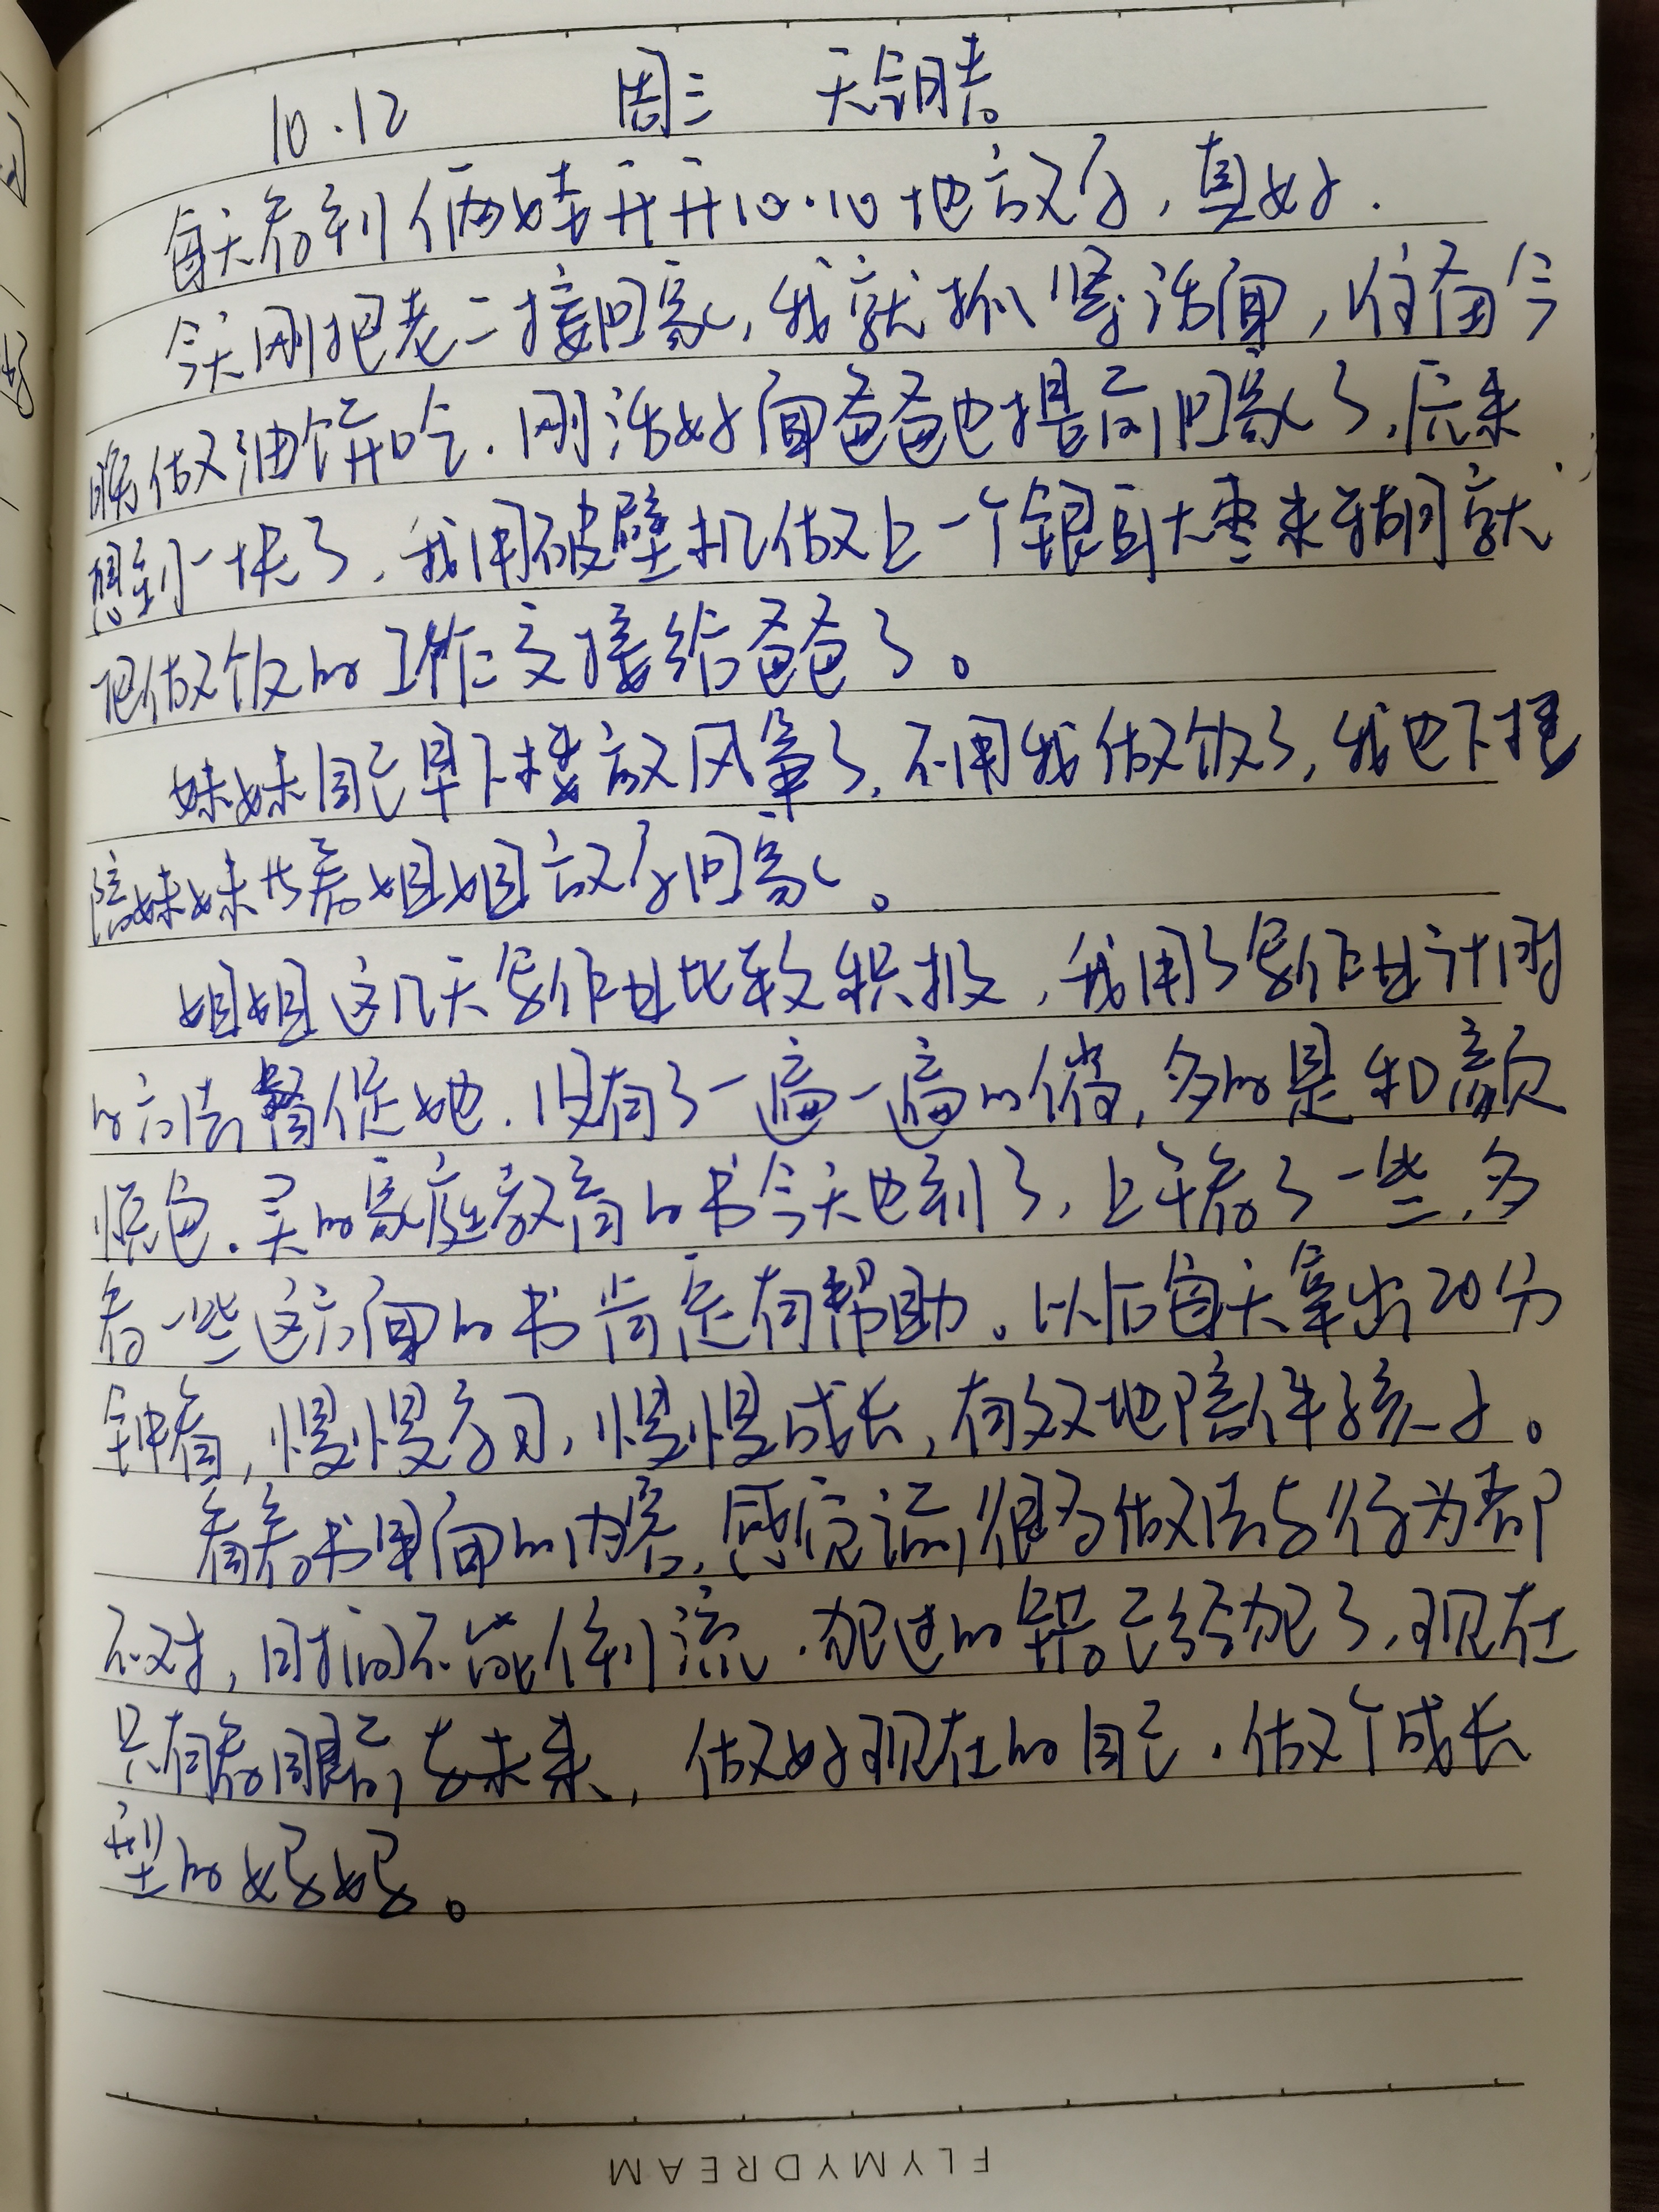 10.12 周三 天气晴。
每天看到俩娃开开心心地放学,真好.
今天刚把老二接回家,我就抓紧活面,准备今
晚做油饼吃.刚活好面爸爸也提前回家了,后来
想到一块了,我用破壁机做上一个银耳大枣米糊就
把做饭的工作交接给爸爸了。
妹妹自己早下楼放风筝了,不用我做饭了,我也下楼
陪妹妹等着姐姐放学回家。
姐姐这几天写作业比较积极,我用了写作业计时
的方法督促她.没有了一遍一遍的催,多的是和颜
悦色.买的家庭教育的书今天也到了,上午看了一些,多
看一些这方面的书肯定有帮助。以后每天拿出20分
钟看,慢慢学习,慢慢成长,有效地陪伴孩子。
看着书里面的内容,感觉之前很多做法与行为都
不对,时间不能倒流.犯过的错已经犯了,现在
只有看眼前与未来,做好现在的自己.做个成长
型的妈妈。
FLYMYDREAM